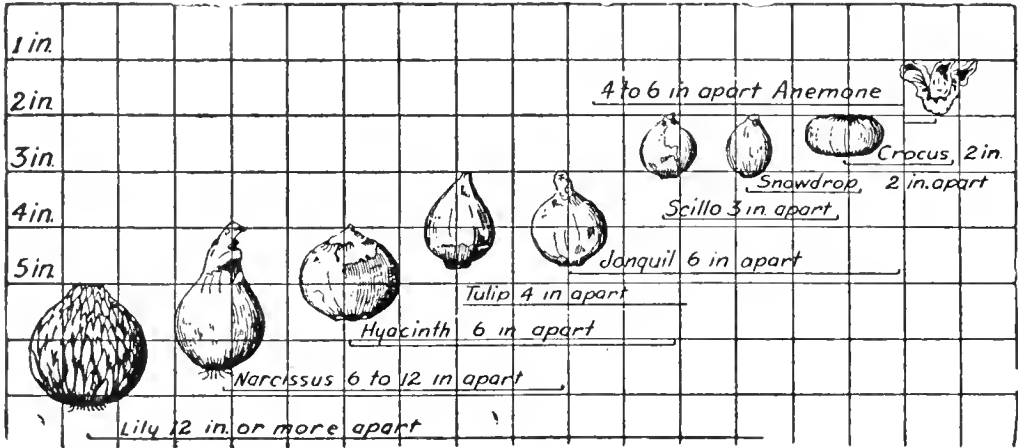 1 in.
2 in.
4 to 6 in apart Anemone
3 in.
Crocus, 2 in.
Snowdrop, 2 in. apart
4 in.
Scillo 3 in. apart
5 in.
Jonquil 6 in apart
Tulip 4 in apart
Hyacinth 6 in apart
Narcissus 6 to 12 in apart
Lily 12 in. or more apart